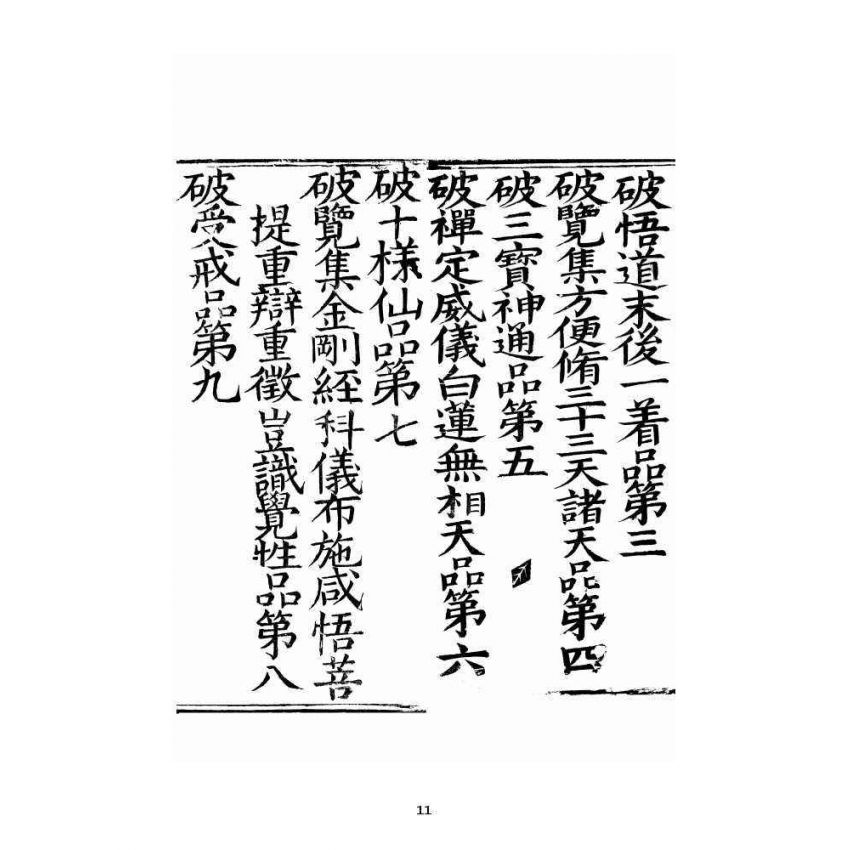 破悟道末後一着品第三
破覽集方便脩三十三天諸天品第四
破三寶神通品第五
破禪定威儀白蓮無相天品第六
破十樣仙品第七
破覽集金剛經科儀布施咸悟菩
提重辯重徵豈識覺性品第八
破受戒品第九
11